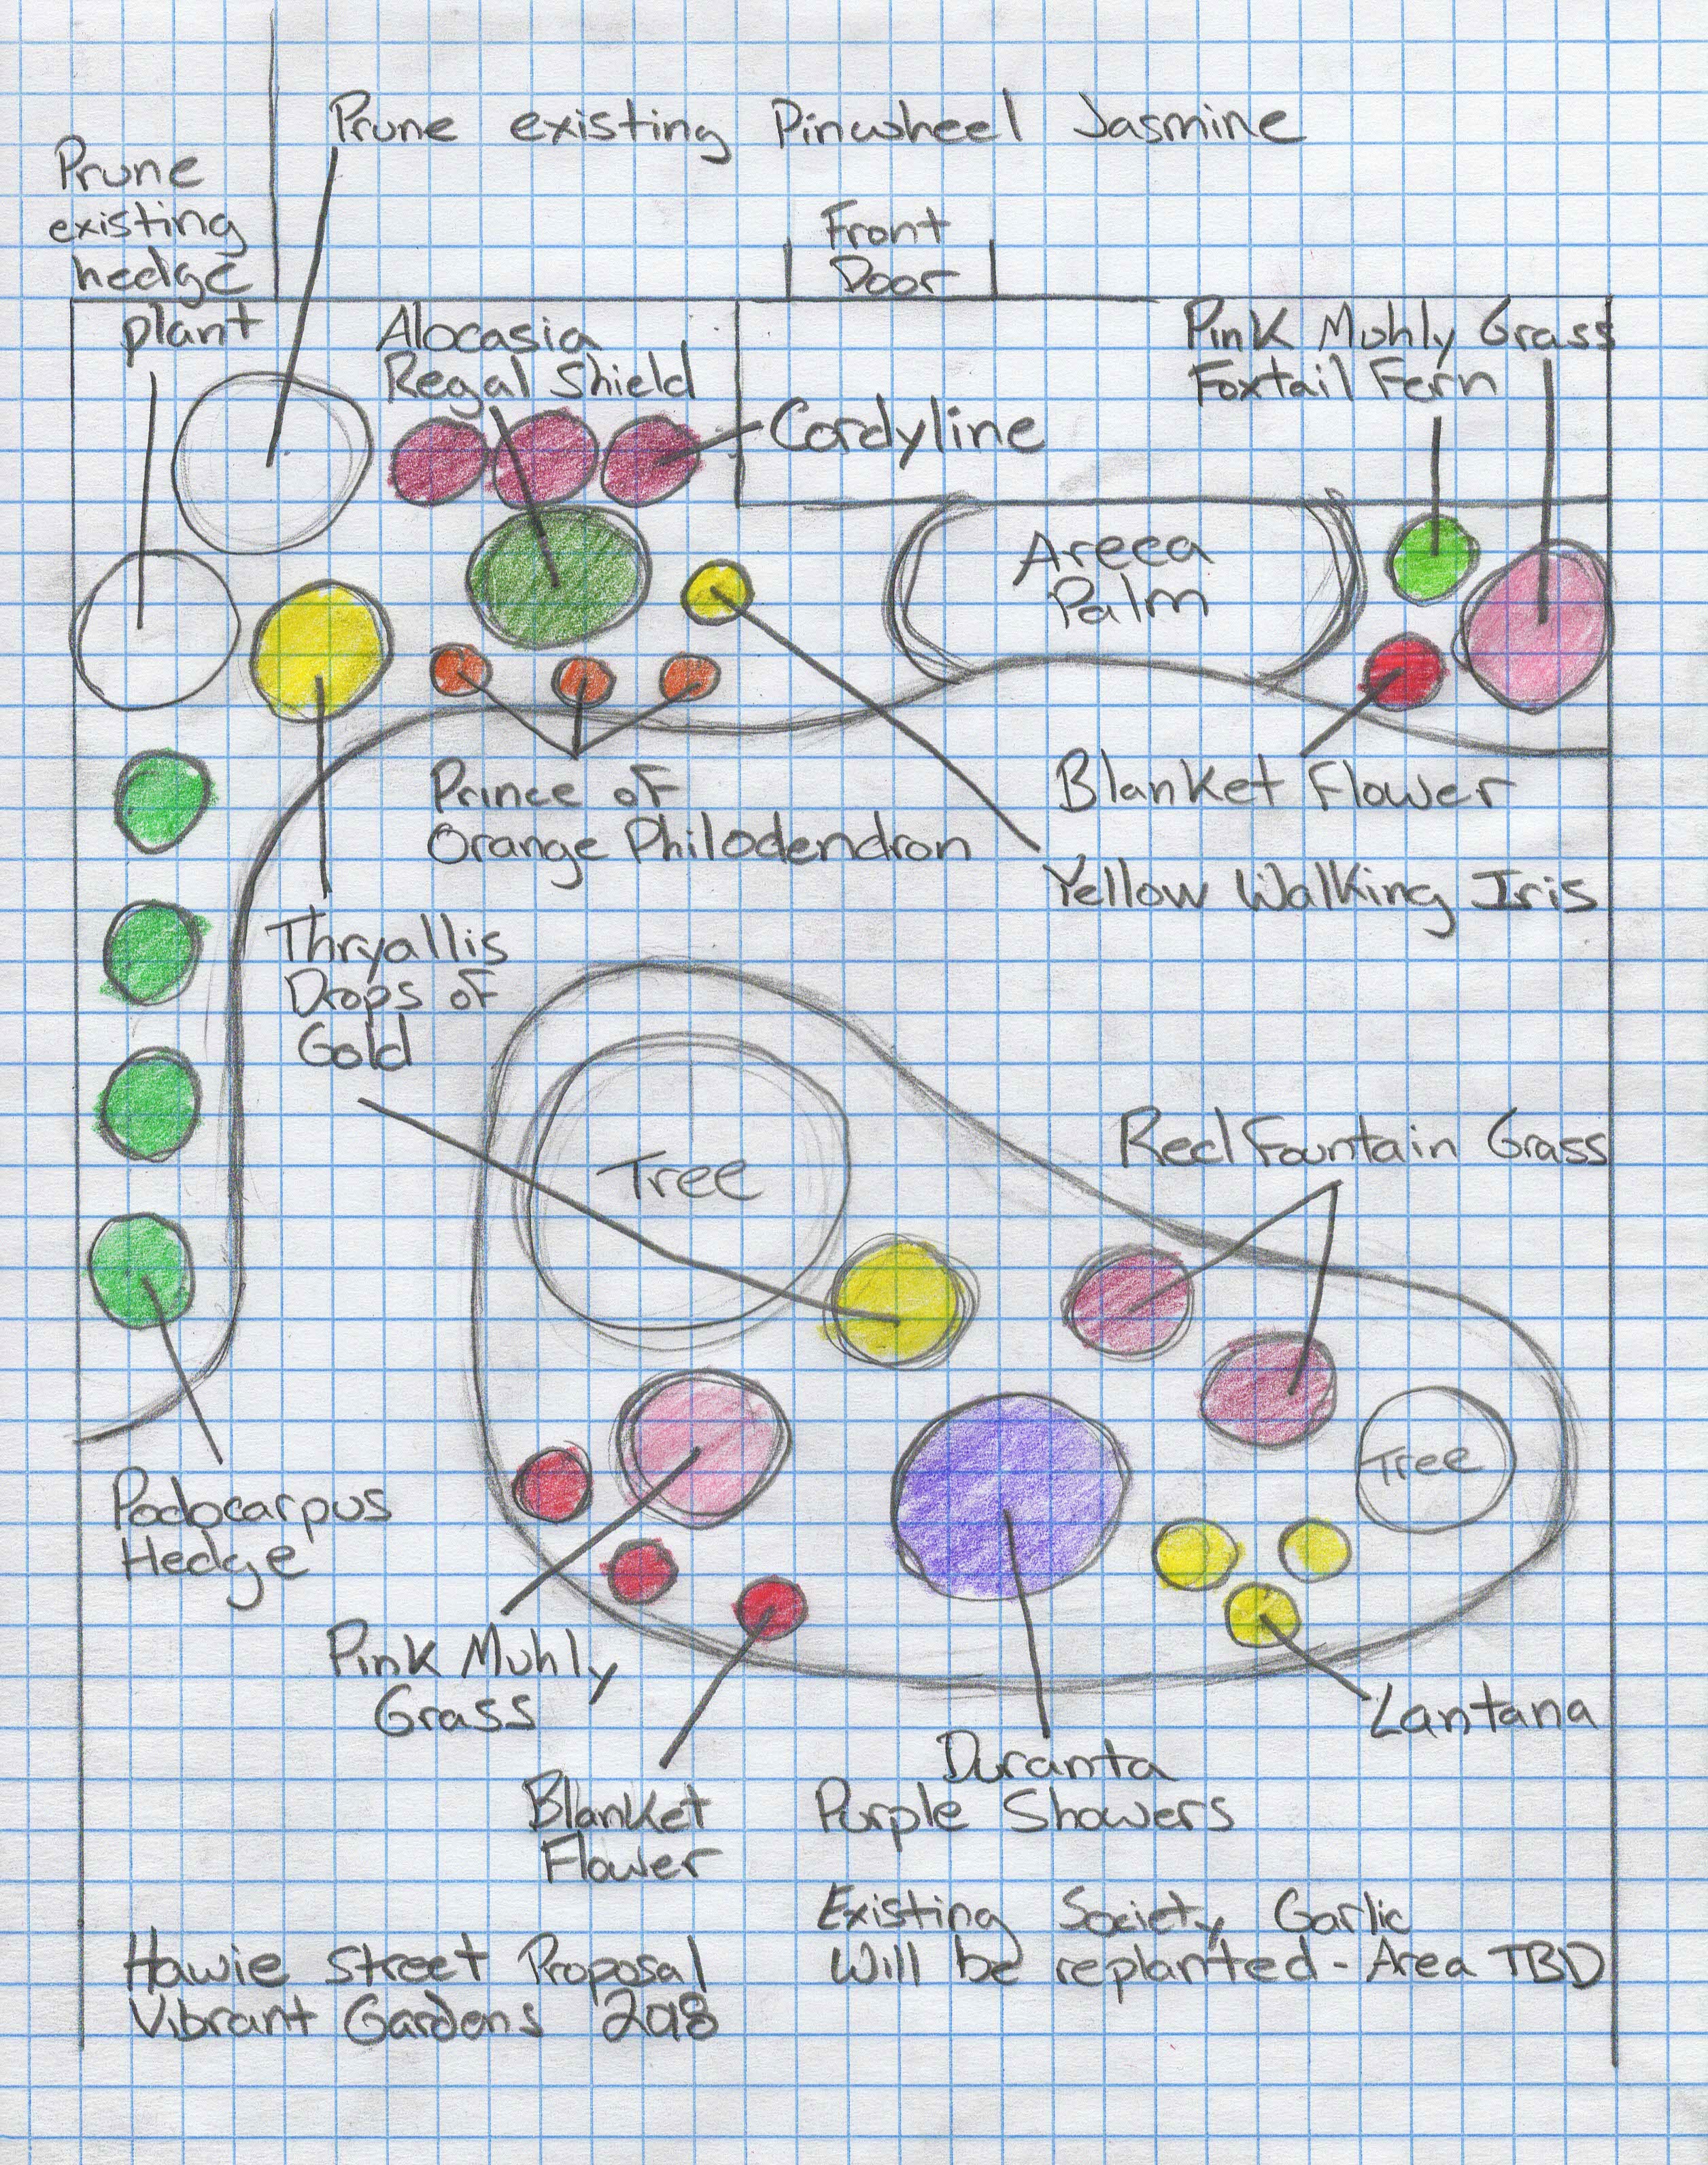 Prune existing Pinwheel Jasmine
Prune
existing
hedge
plant
Front
Door
Alocasia
Regal Shield
Cordyline
Pink Muhly Grass
Foxtail Fern
Areca
Palm
Prince of
Orange Philodendron
Blanket Flower
Yellow Walking Iris
Thryallis
Drops of
Gold
Tree
Red Fountain Grass
Tree
Podocarpus
Hedge
Pink Muhly
Grass
Lantana
Blanket
Flower
Duranta
Purple Showers
Existing Society Garlic
Will be replanted - Area TBD
Hawie Street Proposal
Vibrant Gardens 2018